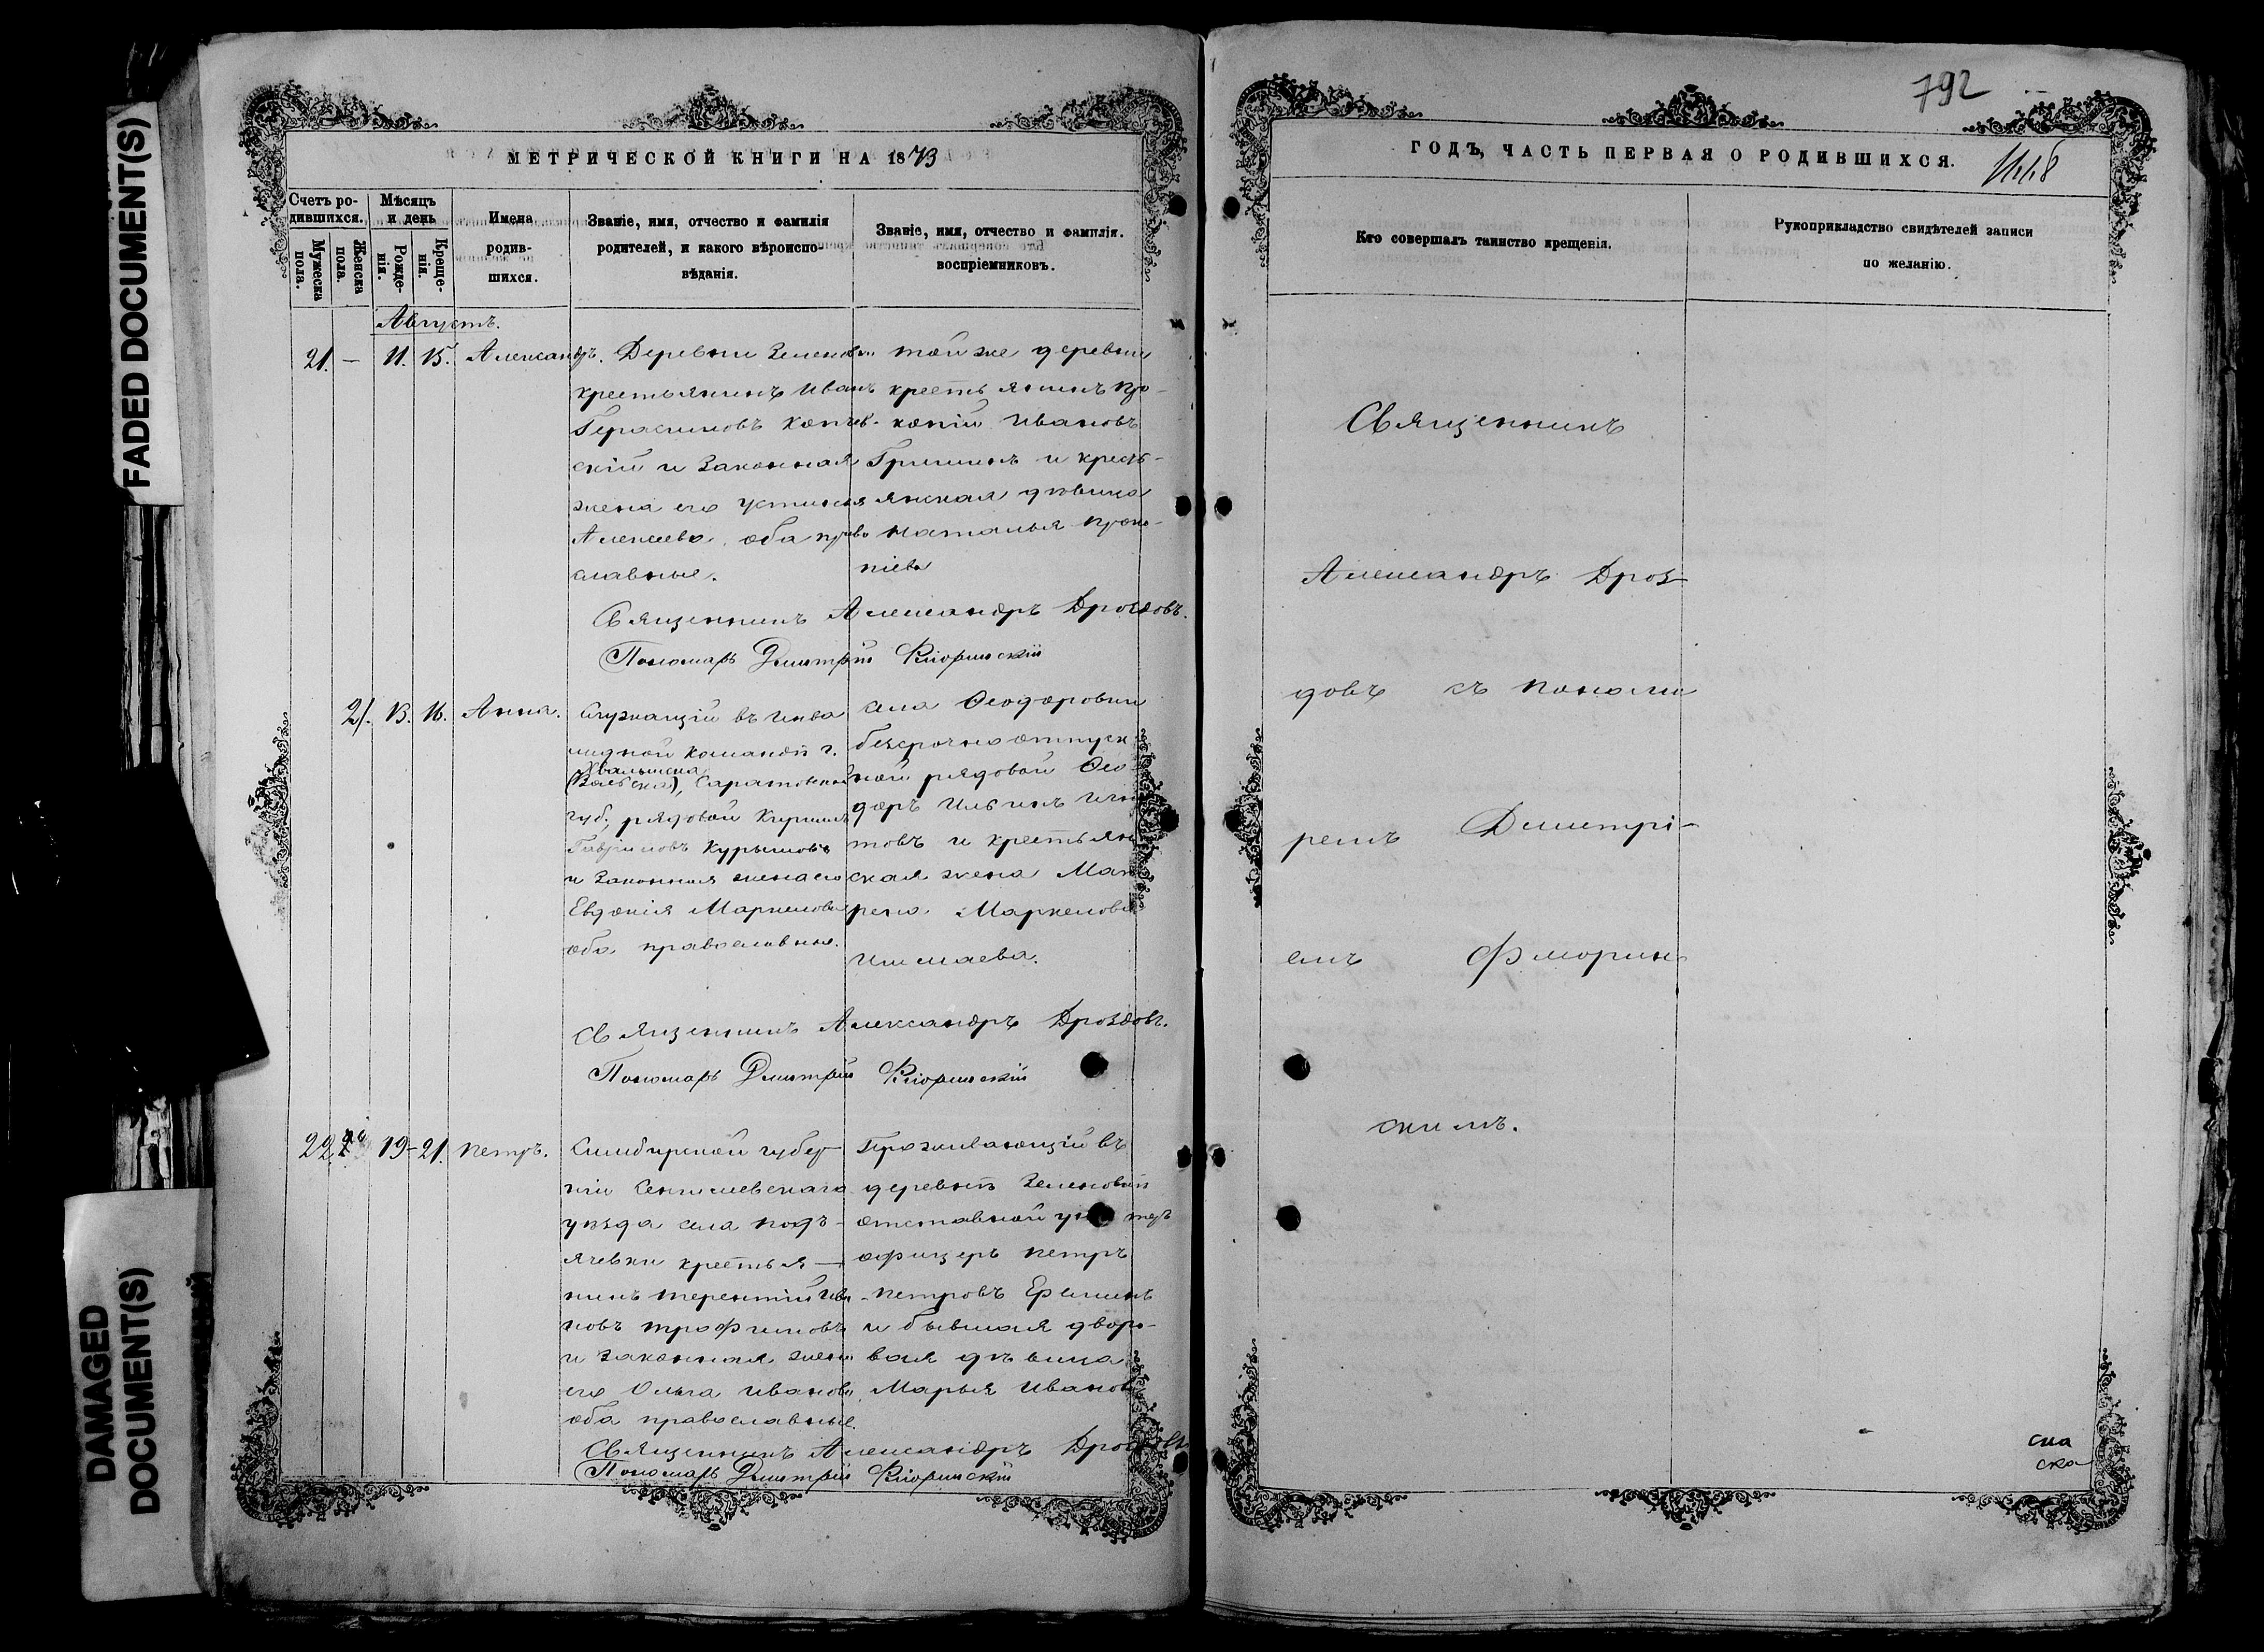 FADED DOCUMENT(S)
DAMAGED
DOCUMENT(S)
МЕТРИЧЕСКОЙ КНИГИ НА 1873
Счетъ ро-
дившихся.
Мужеска
пола.
Женска
пола.
Мѣсяцъ
и день
Рожде-
нія.
Креще-
нія.
Имена
родив-
шихся.
Званіе, имя, отчество и фамилія
родителей, и какого вѣроиспо-
вѣданія.
Званіе, имя, отчество и фамилія.
воспріемниковъ.
Августъ.
21. — 11. 15. Александръ.
Деревни Зеленовки
крестьянинъ Иванъ
Герасимовъ
скій и законная
жена его Устинья
Алексѣева, оба право
славные.
той же деревни
крестьянинъ Про-
копій Ивановъ
Гришинъ и кресть-
янская дѣвица
Наталья Проко-
піева
Священникъ Александръ Дроздовъ.
Пономарь Димитрій Флоринскій
21. 13. 16. Анна.
Служащій въ инва
лидной командѣ г.
Хвалынска
(Вольска), Саратовской
губ., рядовой Кириллъ
Гавриловъ Курышовъ
и законная жена его
Евдокія Маркелова
оба православные.
села Ѳеодоровки
безсрочно отпуск
ной рядовой Ѳео
доръ Ильинъ
товъ и крестьян
ская жена Мав
ренa Маркелова
Ишмаева.
Священникъ Александръ Дроздовъ.
Пономарь Димитрій Флоринскій
22. 19-21. Петръ.
Симбирской губер-
ніи Сенгилевскаго
уѣзда села Подъ-
ячевки крестья-
нинъ Терентій Ива
новъ Трофимовъ
и законная жена
его Ольга Иванова
оба православные.
Проживающій въ
деревнѣ Зеленовкѣ
отставной унтеръ
офицеръ Петръ
Петровъ Ереминъ
и бывшая дворо-
вая дѣвица
Марья Иванова
Священникъ Александръ Дроздовъ
Пономарь Димитрій Флоринскій
792
ГОДЪ, ЧАСТЬ ПЕРВАЯ О РОДИВШИХСЯ.
Кто совершалъ таинство крещенія.
Рукоприкладство свидѣтелей записи
по желанію.
Священникъ
Александръ Дроз-
довъ съ понома
ремъ Димитрі-
емъ Флорин-
скимъ.
ска